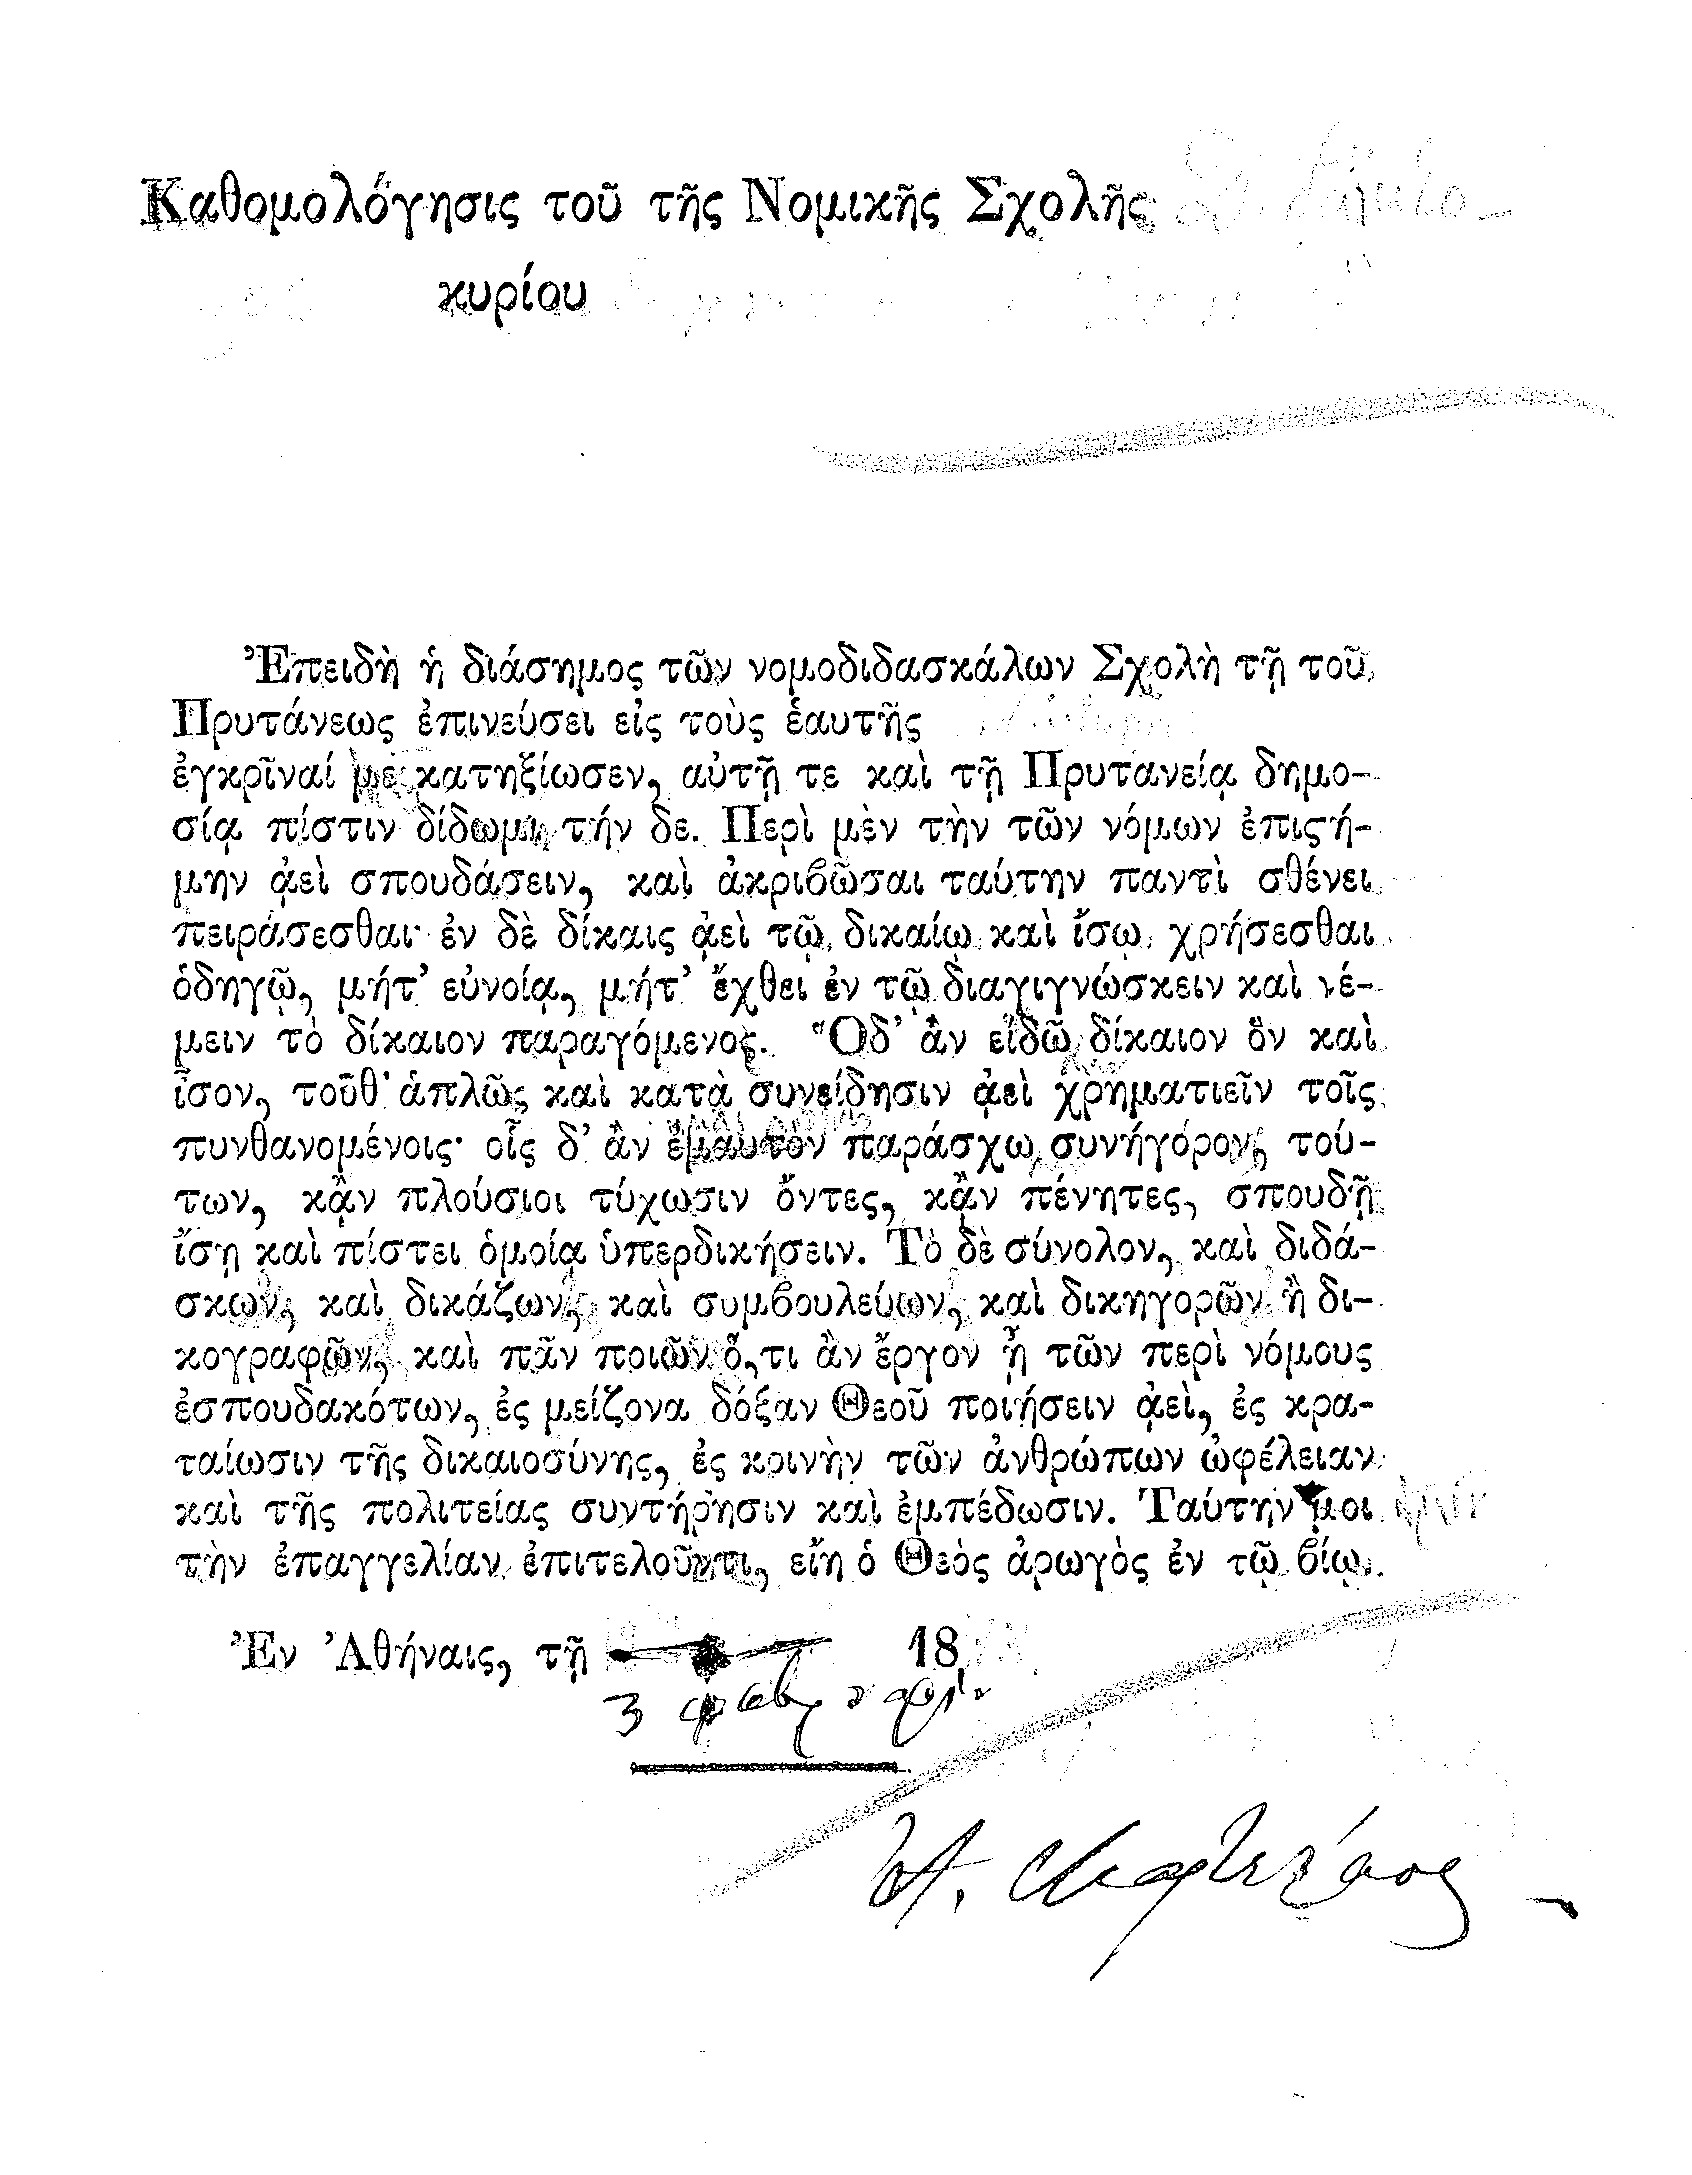 Καθομολόγησις τοῦ τῆς Νομικῆς Σχολῆς
κυρίου
Ἐπειδὴ ἡ διάσημος τῶν νομοδιδασκάλων Σχολὴ τῇ τοῦ
Πρυτάνεως ἐπινεύσει εἰς τοὺς ἑαυτῆς
ἐγκρῖναί με κατηξίωσεν, αὐτῇ τε καὶ τῇ Πρυτανείᾳ δημο-
σίᾳ πίστιν δίδωμι τήν δε. Περὶ μὲν τὴν τῶν νόμων ἐπιϛή-
μην ᾀεὶ σπουδάσειν, καὶ ἀκριβῶσαι ταύτην παντὶ σθένει
πειράσεσθαι· ἐν δὲ δίκαις ᾀεὶ τῷ δικαίῳ καὶ ἴσῳ χρήσεσθαι
ὁδηγῷ, μήτ' εὐνοίᾳ, μήτ' ἔχθει ἐν τῷ διαγιγνώσκειν καὶ νέ-
μειν τὸ δίκαιον παραγόμενος. Ὅδ' ἂν εἰδῶ δίκαιον ὂν καὶ
ἶσον, τοῦθ' ἁπλῶς καὶ κατὰ συνείδησιν ᾀεὶ χρηματιεῖν τοῖς
πυνθανομένοις· οἷς δ' ἂν ἐμαυτὸν παράσχω συνήγορον, τού-
των, κᾂν πλούσιοι τύχωσιν ὄντες, κᾂν πένητες, σπουδῇ
ἴσῃ καὶ πίστει ὁμοίᾳ ὑπερδικήσειν. Τὸ δὲ σύνολον, καὶ διδά-
σκων, καὶ δικάζων, καὶ συμβουλεύων, καὶ δικηγορῶν ἢ δι-
κογραφῶν, καὶ πᾶν ποιῶν ὅ,τι ἂν ἔργον ᾖ τῶν περὶ νόμους
ἐσπουδακότων, ἐς μείζονα δόξαν Θεοῦ ποιήσειν ᾀεὶ, ἐς κρα-
ταίωσιν τῆς δικαιοσύνης, ἐς κοινὴν τῶν ἀνθρώπων ὠφέλειαν
καὶ τῆς πολιτείας συντήρησιν καὶ ἐμπέδωσιν. Ταύτην μοι
τὴν ἐπαγγελίαν ἐπιτελοῦντι, εἴη ὁ Θεὸς ἀρωγὸς ἐν τῷ βίῳ.
Ἐν Ἀθήναις, τῇ 18
3 φεβρουαρίου